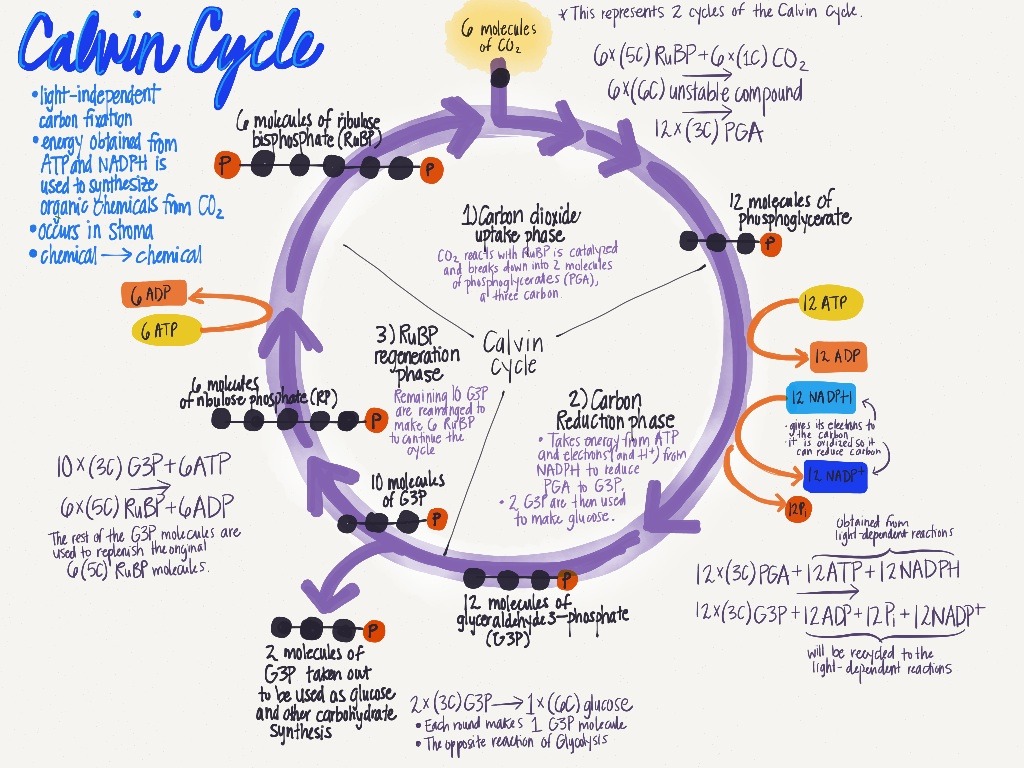 Calvin Cycle
• light-independent
carbon fixation
• energy obtained from
ATP and NADPH is
used to synthesize
organic chemicals from CO₂
• occurs in stroma
• chemical → chemical
6 molecules
of CO₂
* This represents 2 cycles of the Calvin Cycle.
6×(5C) RuBP + 6×(1C) CO₂
→
6×(6C) unstable compound
→
12×(3C) PGA
6 molecules of ribulose
bisphosphate (RuBP)
P P
12 molecules of
phosphoglycerate
P
1) Carbon dioxide
uptake phase
CO₂ reacts with RuBP is catalyzed
and breaks down into 2 molecules
of phosphoglycerates (PGA),
a three carbon.
6 ADP
6 ATP
12 ATP
12 ADP
12 NADPH
• gives its electrons to
the carbon
• it is oxidized so it
can reduce carbon
12 NADP⁺
12Pᵢ
Calvin
cycle
3) RuBP
regeneration
phase
Remaining 10 G3P
are rearranged to
make 6 RuBP
to continue the
cycle
2) Carbon
Reduction phase
• Takes energy from ATP
and electrons (and H⁺) from
NADPH to reduce
PGA to G3P.
• 2 G3P are then used
to make glucose.
6 molecules
of ribulose phosphate (RP)
P
10 molecules
of G3P
P
10×(3C) G3P + 6ATP
→
6×(5C) RuBP + 6ADP
The rest of the G3P molecules are
used to replenish the original
6(5C) RuBP molecules.
P
12 molecules of
glyceraldehyde 3-phosphate
(G3P)
Obtained from
light-dependent reactions
12×(3C) PGA + 12ATP + 12NADPH
→
12×(3C) G3P + 12ADP + 12Pᵢ + 12NADP⁺
will be recycled to the
light-dependent reactions
P
2 molecules of
G3P taken out
to be used as glucose
and other carbohydrate
synthesis
2×(3C) G3P → 1×(6C) glucose
• Each round makes 1 G3P molecule
• The opposite reaction of Glycolysis